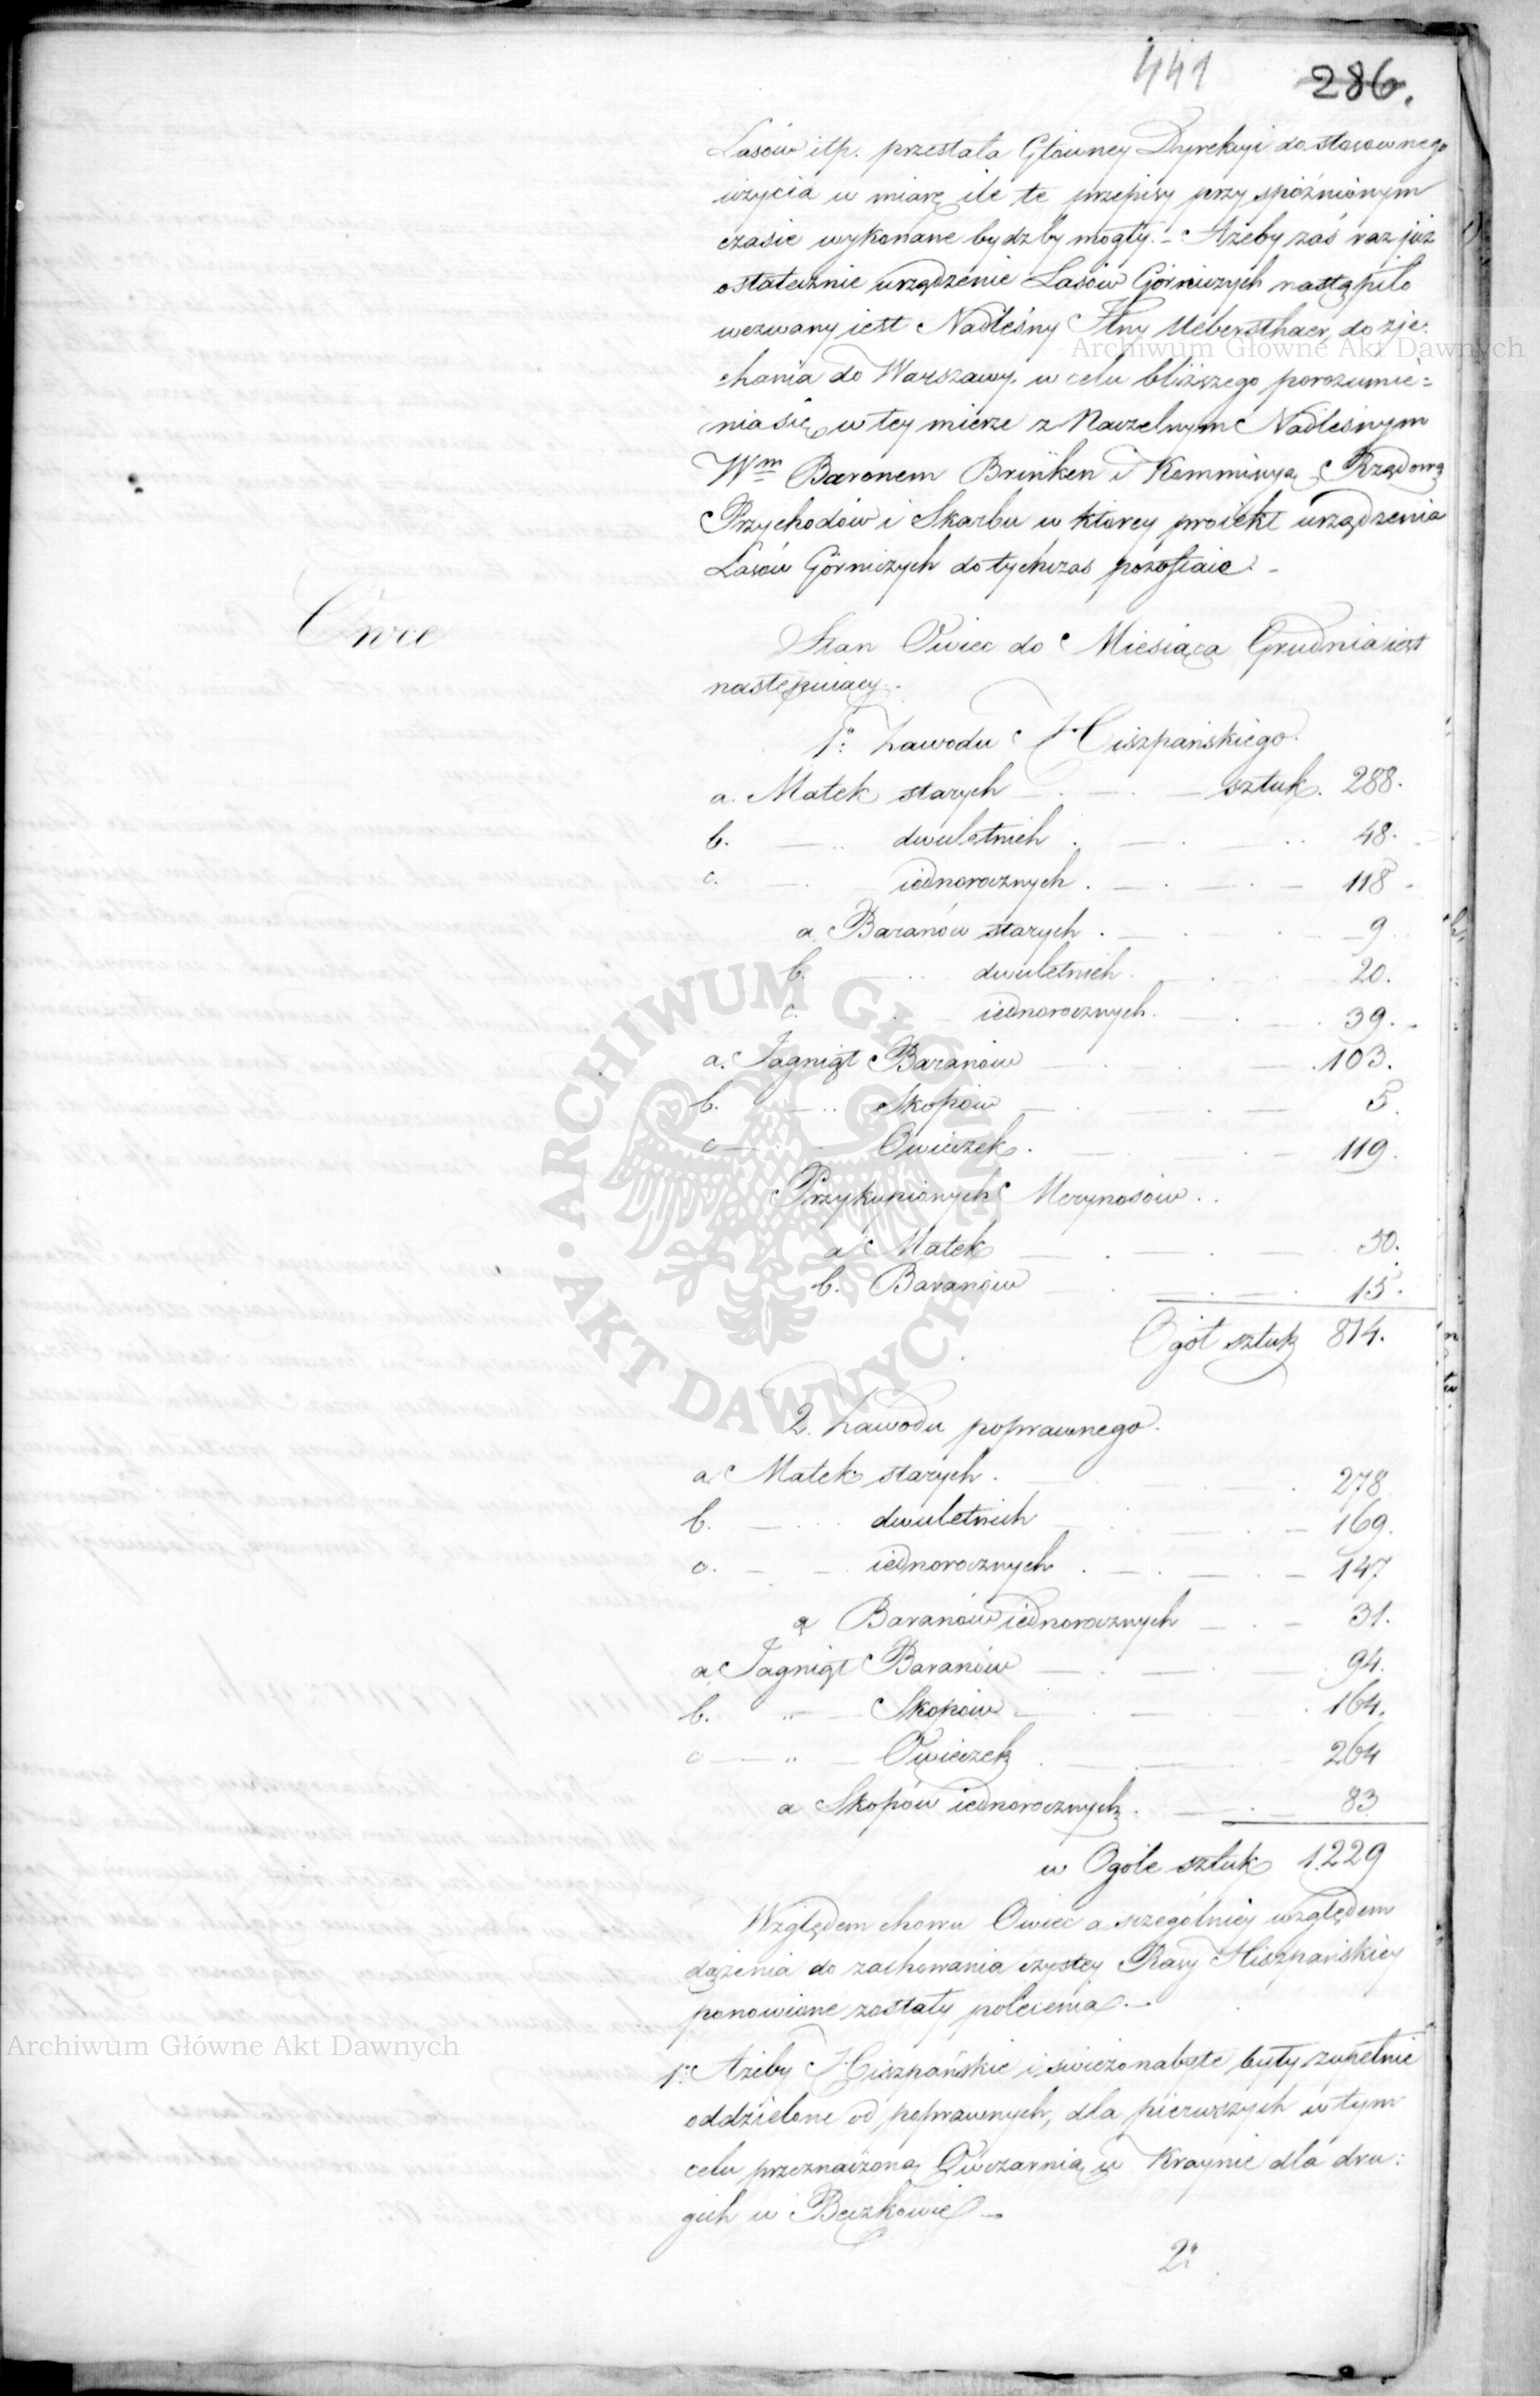 441 286.
Lasów itp. przestała Główney Dyrekcyi do stosownego
użycia w miarę ile te przepisy przy spóźnionym
czasie wykonane bydź by mogły. – Ażeby zaś raz już
ostatecznie urządzenie Lasów Górniczych nastąpiło
wezwany iest Nadleśny Jlny Ueberschaer, do zje-
chania do Warszawy, w celu bliższego porozumie=
nia się w tey mierze z Naczelnym Nadleśnym
Wm Baronem Brinken i Kommissyą Rządową
Przychodów i Skarbu w którey proiekt urządzenia
Lasów Górniczych dotychczas pozostaie. –
Owce
Stan Owiec do Miesiąca Grudnia iest
następuiący.
1o: Zawodu Hiszpańskiego.
a. Matek starych — sztuk. 288.
b. — dwuletnich . — 48.
c. — iednorocznych . — 118
a. Baranów starych . — 9
b. — dwuletnich . 20.
c. — iednorocznych. — 39.
a. Jagniąt Baranów — 103.
b. — Skopów — 5.
c — Owieczek. — 119.
Przykupionych Merynosów . .
a Matek — 50.
b. Baranów — 15.
Ogół sztuk 814.
2. Zawodu poprawnego.
a. Matek starych. — 278.
b. — dwuletnich — 169.
c. — iednorocznych . — 147
a Baranów iednorocznych — 31.
a. Jagniąt Baranów — 94.
b. „ — Skopów — 164.
c — „ — Owieczek . — 264
a Skopów iednorocznych. — 83
w Ogóle sztuk 1.229
Względem chowu Owiec a szczególniey względem
dążenia do zachowania czystey Rasy Hiszpańskiey
ponowione zostały polecenia. —
1o: Ażeby Hiszpańskie i świeżo nabyte były zupełnie
oddzielone od poprawnych, dla pierwszych w tym
celu przeznaczoną Owczarnią w Kraynie dla dru:
gich w Bęczkowie —
2o:
Archiwum Główne Akt Dawnych
ARCHIWUM GŁÓWNE
AKT DAWNYCH
Archiwum Główne Akt Dawnych